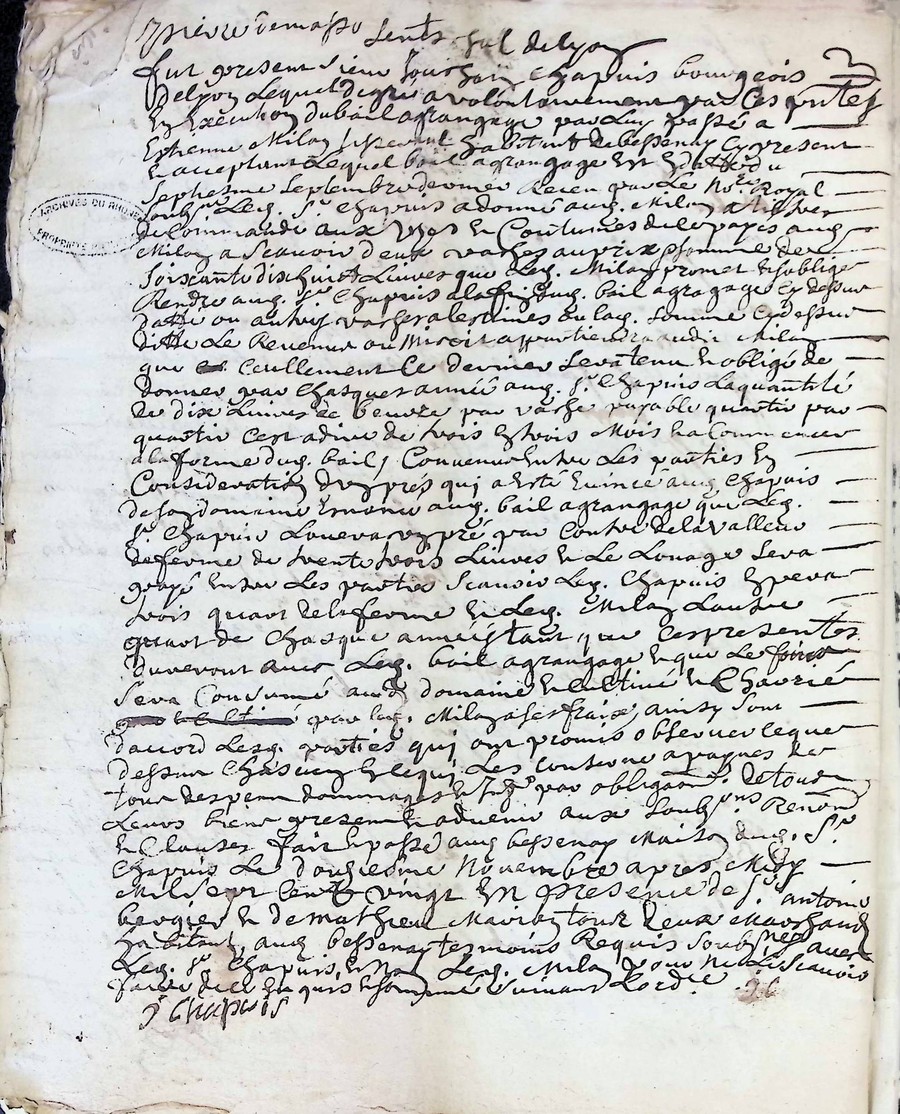 fut present sieur Chapuis bourgeois
Delyon Lequel degre a volontairement par Ces pntes
En Execution du bail agrangage par Luy passé a
Estienne Milan habitant de bessenay Cy present
Et acceptant Lequel bail agrangage Est datté du
septiesme septembre dernier Receu par Le No.re Royal
soubz.né Leq. s.r Chapuis a donné auq. Milan
de Commande aux us et Coutumes de ce pays auq
Milan a scavoir deux vaches au prix et somme de
soixante dix huict Livres que Leq. Milan promet et soblige
Rendre auq. s.r Chapuis ala fin duq. bail agragage Cy dessus
datté ou autres vaches a Lestimes ou laq. somme Cy dessus
ditte Le Revenu ou appartiendra audit Milan
que Ceullement Ce dernier sera tenu Et obligé de
donner par Chasques année auq. s.r Chapuis La quantité
de dix Livres de beurre par vache payable quartier par
quartier Cest adire de trois En trois Mois ha Commencer
ala forme duq. bail, Convenu Entre Les parties En
Consideration du pres qui a Esté auq Chapuis
de son domaine auq. bail agrangage que Leq.
s.r Chapuis Louera un pré par Contre de la valleur
de ferme de trente trois Livres Et Le Louage sera
payé Entre Les parties scavoir Leq. Chapuis En
trois quart de la ferme Et Leq. Milan Lautre
quart de Chasque année tant que Ces presentes
dureront avec Leq. bail agrangage Et que Le foins
sera Consumé aud domaine Et Cultivé Et Charrié
par Leq. Milan a ses fraix, ainsy sont
daccord Lesq. parties qui ont promis observer ce que
dessus Chascun En ce qui Les Concerne a paynes de
tous despens dommages Et par obligaon. de tous
Leurs biens presents Et advenir aux soubz.ons Renon.
Et Clauses fait Et passé auq bessenay Maison duq. s.r
Chapuis Le douzieme Novembre apres Midy
Mil sept Cents vingt En presence de s.r antoine
bergier Et de Mathieu tous deux Marchand
habitant auq bessenay temoins Requis soubz.nes avec
Leq. s.r Chapuis, Et Non Leq. Milan pour Ne Le scavoir
faire de ce Enquis Et sommé suivant Lordce.
Chapuis
ARCHIVES DU RHÔNE
PROPRIÉTÉ